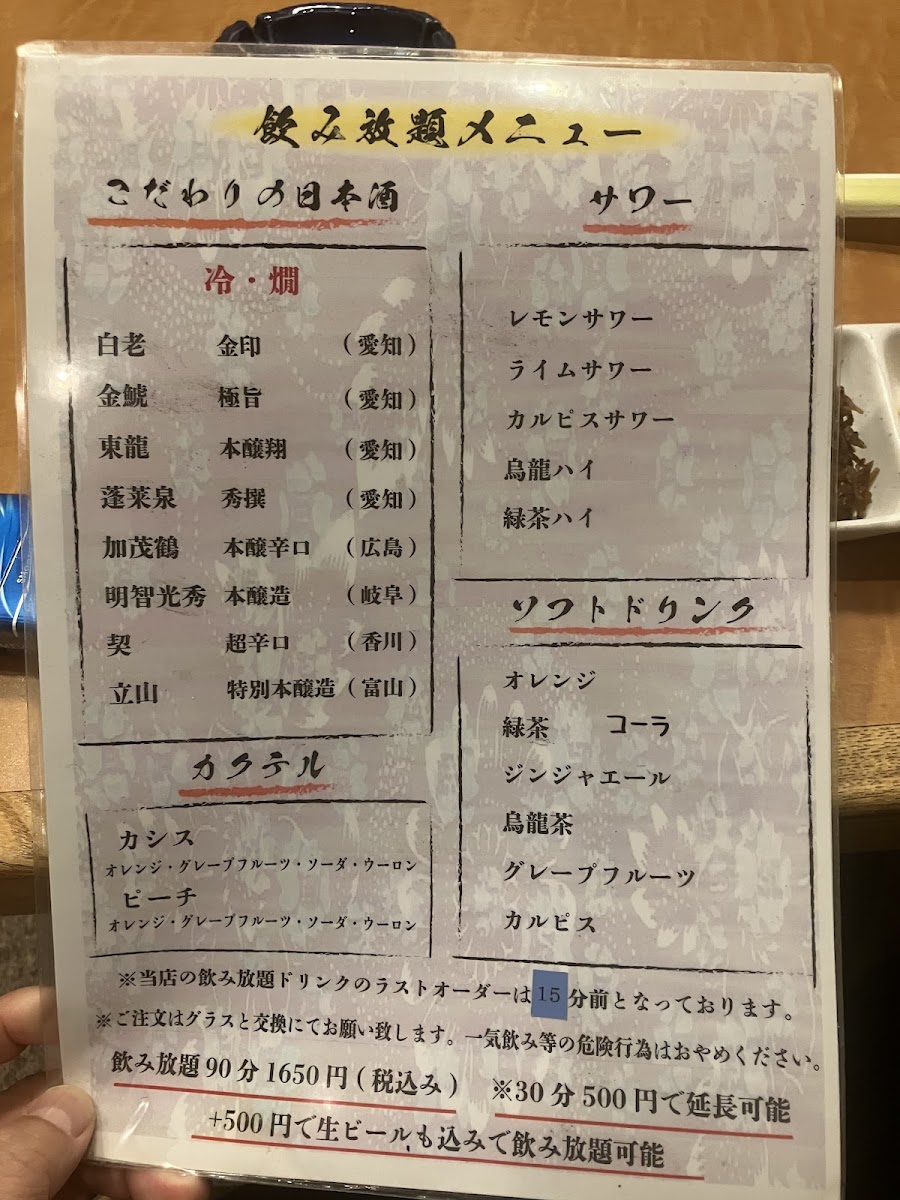 飲み放題メニュー
こだわりの日本酒
冷・燗
白老 金印 (愛知)
金鯱 極旨 (愛知)
東龍 本醸翔 (愛知)
蓬莱泉 秀撰 (愛知)
加茂鶴 本醸辛口 (広島)
明智光秀 本醸造 (岐阜)
契 超辛口 (香川)
立山 特別本醸造 (富山)
カクテル
カシス
オレンジ・グレープフルーツ・ソーダ・ウーロン
ピーチ
オレンジ・グレープフルーツ・ソーダ・ウーロン
サワー
レモンサワー
ライムサワー
カルピスサワー
烏龍ハイ
緑茶ハイ
ソフトドリンク
オレンジ
緑茶 コーラ
ジンジャエール
烏龍茶
グレープフルーツ
カルピス
※当店の飲み放題ドリンクのラストオーダーは15分前となっております。
※ご注文はグラスと交換にてお願い致します。一気飲み等の危険行為はおやめください。
飲み放題90分1650円(税込み) ※30分500円で延長可能
+500円で生ビールも込みで飲み放題可能